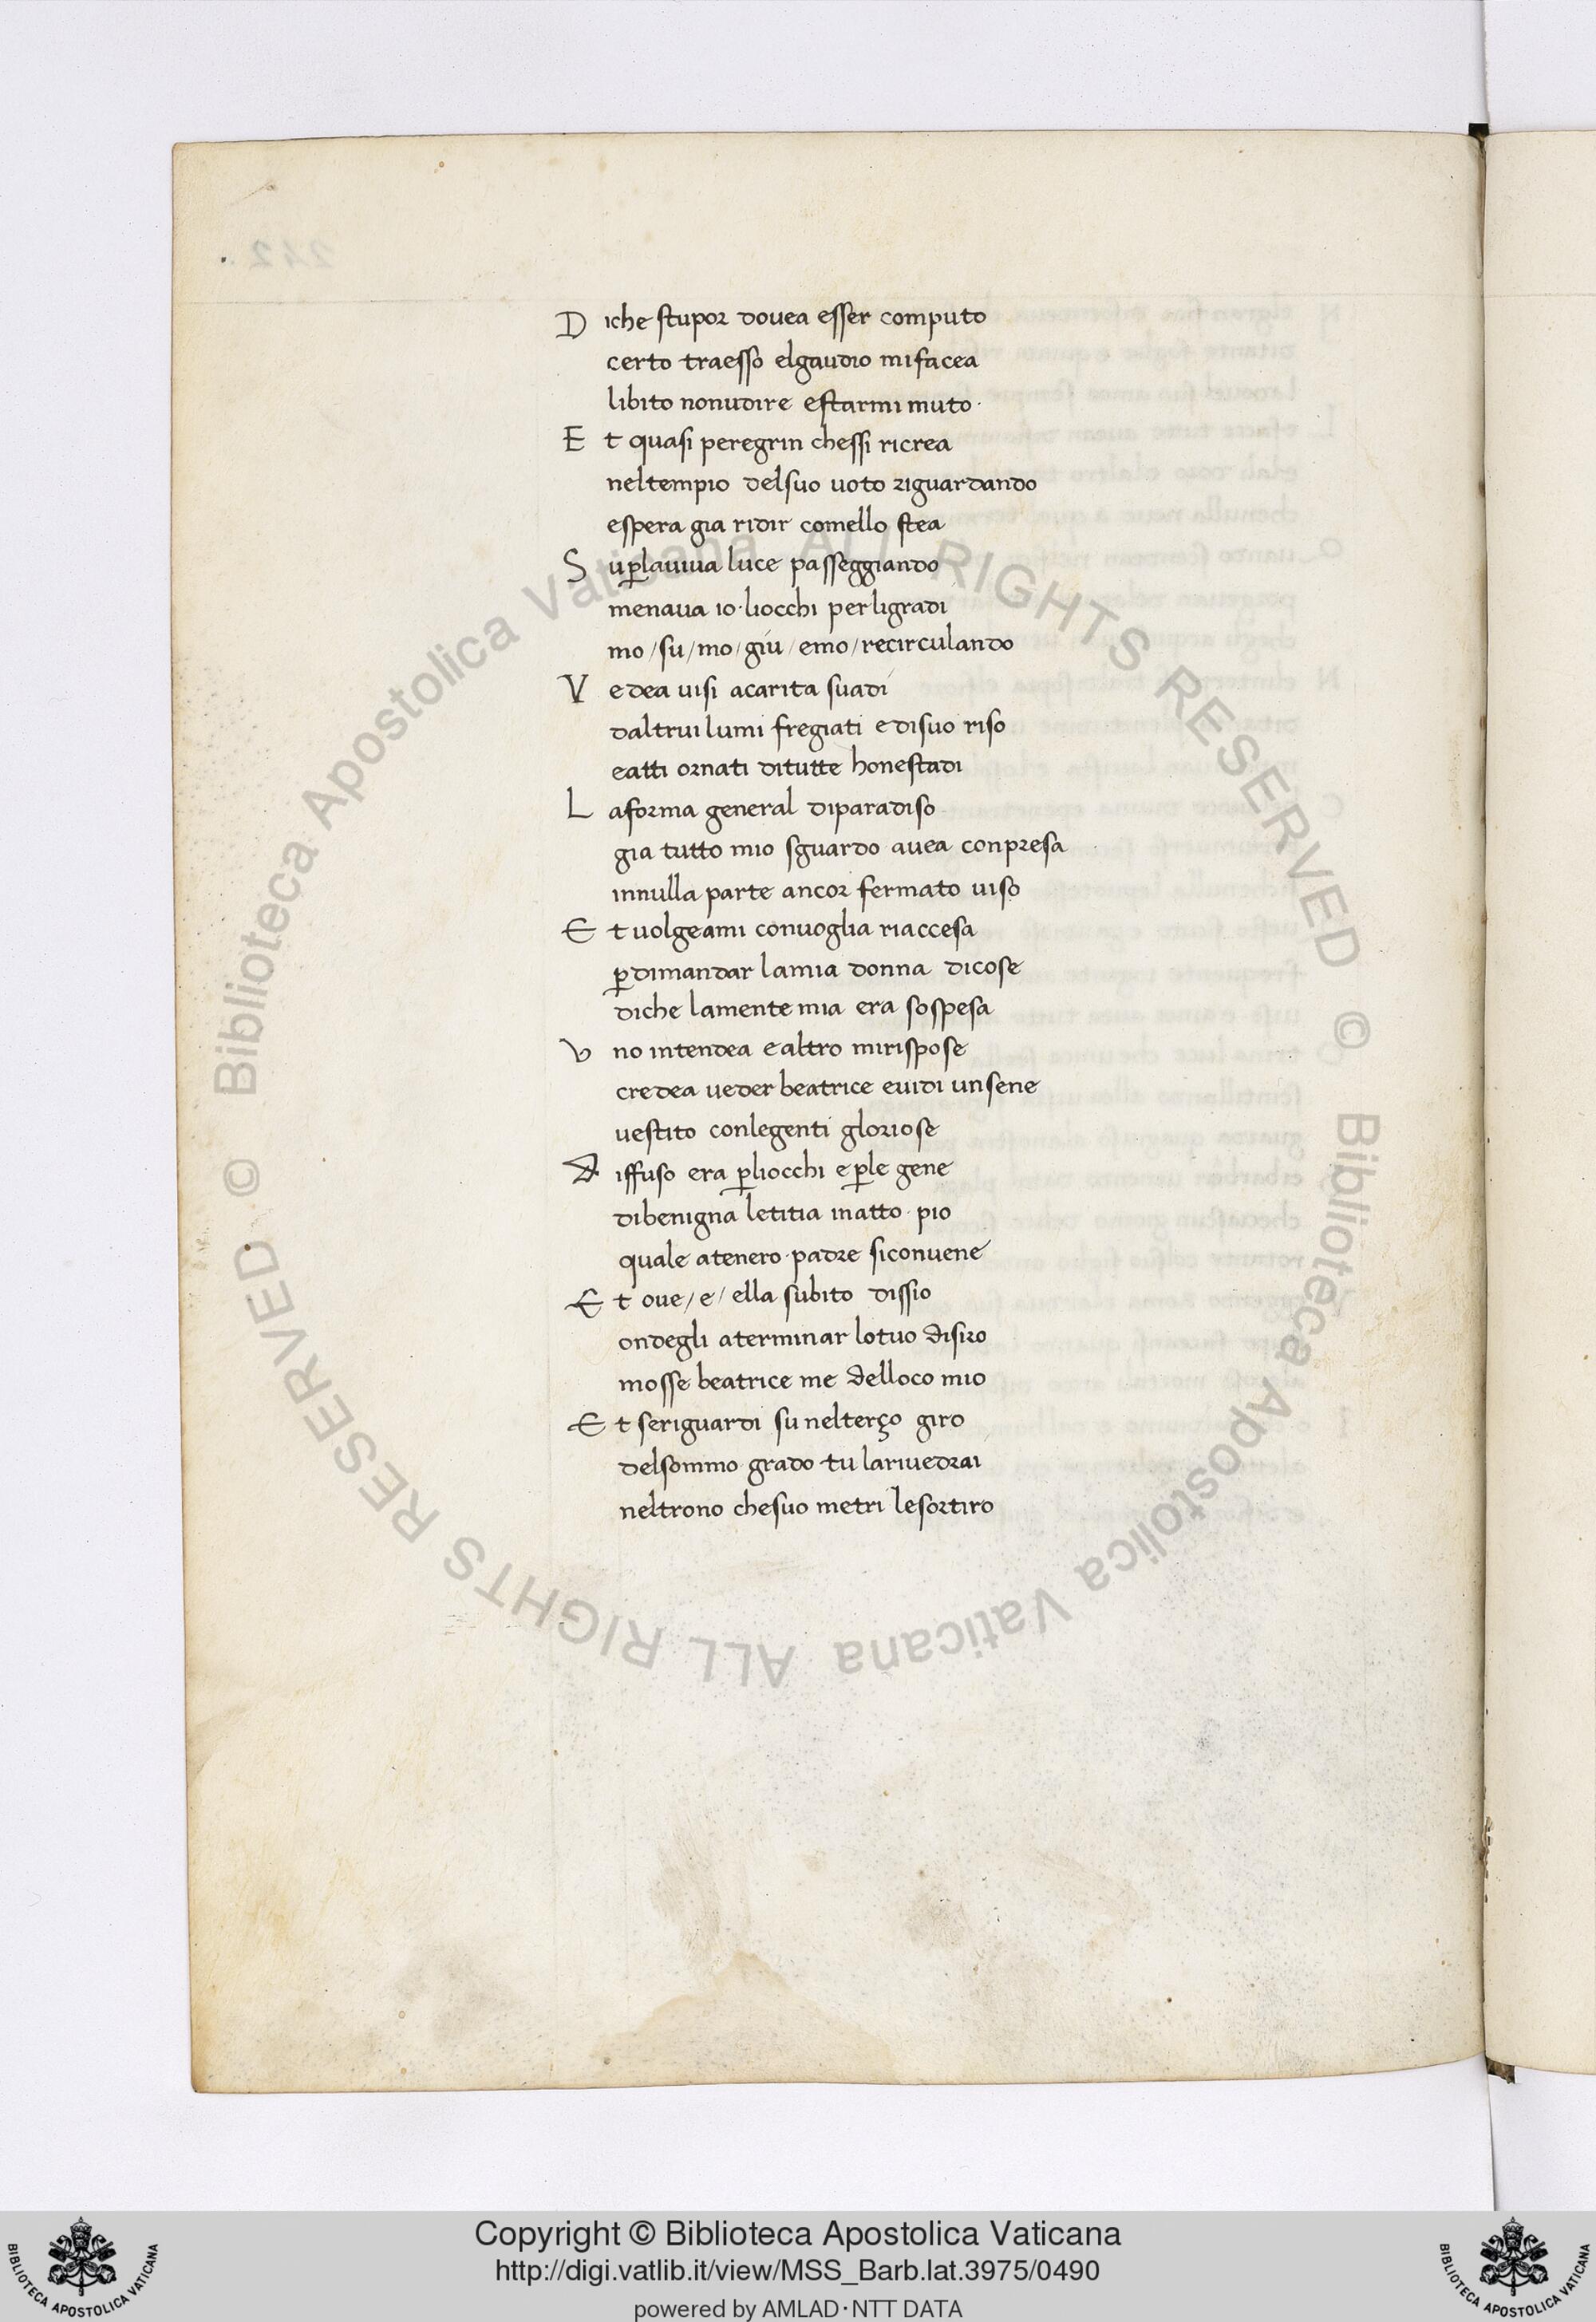 D iche stupor dovea esser computo
certo traesso elgaudio mi facea
libito nonudire estarmi muto·
E t quasi peregrin chessi ricrea
neltempio delsuo uoto riguardando
espera gia ridir comello stea
S uꝑlauiua luce passeggiando
menaua io·liocchi per ligradi
mo/su/mo/giú/emo/recirculando
V edea uisi acarita suadi
daltrui lumi fregiati edisuo riso
eatti ornati ditutte honestadi
L aforma general diparadiso
gia tutto mio sguardo auea conpresa
innulla parte ancor fermato uiso
E t uolgeami conuoglia riaccesa
ꝑdimandar lamia donna dicose
diche lamente mia era sospesa
V no intendea ealtro mirispose
credea ueder beatrice euidi unsene
uestito conlegenti gloriose
D iffuso era ꝑliocchi eꝑle gene
dibenigna letitia inatto·pio
quale atenero·padre siconuene
E t oue/e/ella subito dissio
ondegli aterminar lotuo disiro
mosse beatrice me delloco mio
E t seriguardi su nelterço giro
delsommo grado tu lariuedrai
neltrono chesuo metri lesortiro
© Biblioteca Apostolica Vaticana ALL RIGHTS RESERVED © Biblioteca Apostolica Vaticana ALL RIGHTS RESERVED
Copyright © Biblioteca Apostolica Vaticana
http://digi.vatlib.it/view/MSS_Barb.lat.3975/0490
powered by AMLAD·NTT DATA
BIBLIOTECA APOSTOLICA VATICANA
BIBLIOTECA APOSTOLICA VATICANA